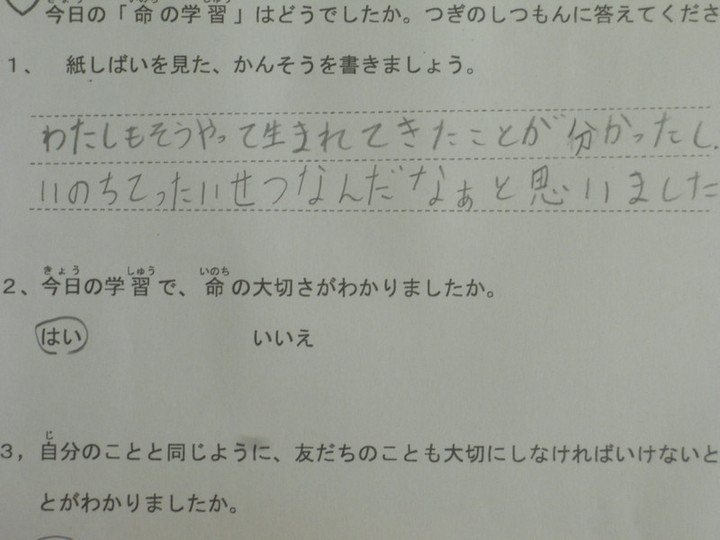 今日の「命の学習」はどうでしたか。つぎのしつもんに答えてくださ
1、 紙しばいを見た、かんそうを書きましょう。
わたしもそうやって生まれてきたことが分かったし、
いのちてったいせつなんだなぁと思いました
2、今日の学習で、命の大切さがわかりましたか。
はい いいえ
3，自分のことと同じように、友だちのことも大切にしなければいけないと
とがわかりましたか。